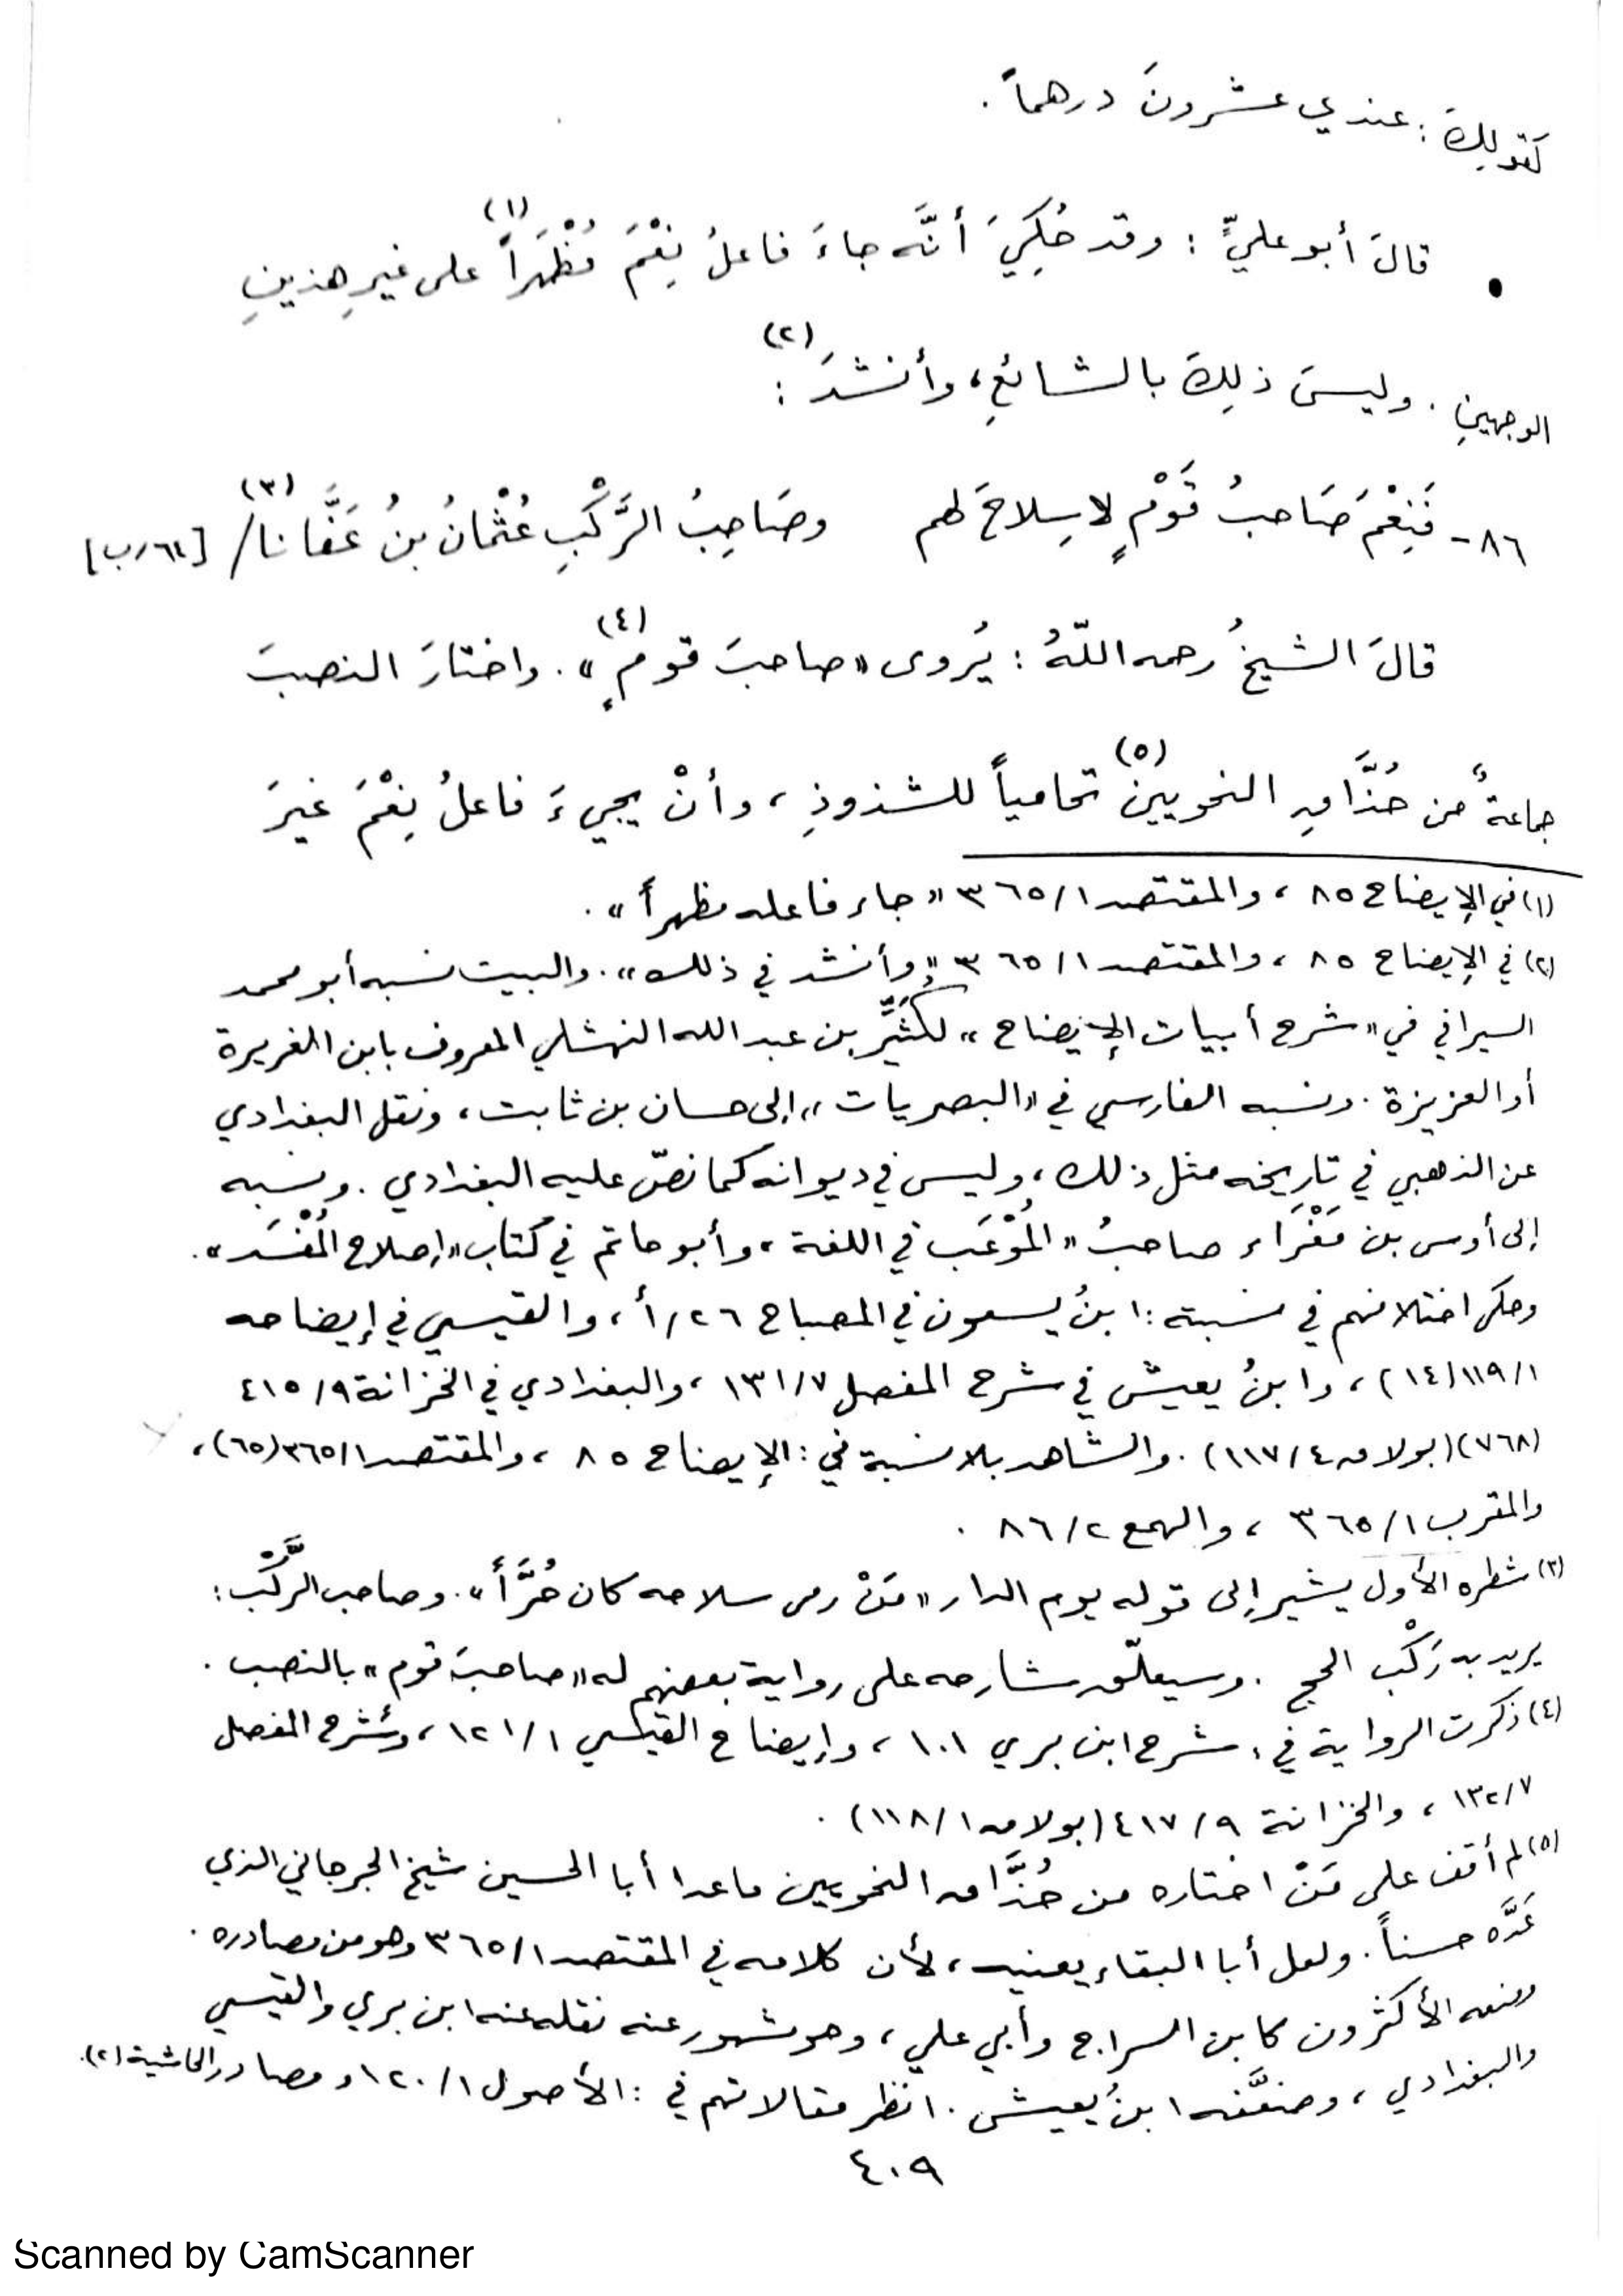 كقولِكَ: عندي عشرونَ درهماً.
• قالَ أبو عليٍّ: وقد حُكِيَ أنَّه جاءَ فاعلُ نِعْمَ مُظْهَراً(١) على غيرِ هذينِ
الوجهينِ. وليسَ ذلِكَ بالشائعِ، وأنشدَ(٢):
٨٦- فَنِعْمَ صَاحبُ قَوْمٍ لا سِلاحَ لهم وصَاحِبُ الرَّكْبِ عُثْمانُ بنُ عَفَّانا(٣)/ [٦١/ب]
قالَ الشيخُ رحمه اللّهُ: يُروى «صاحبَ قومٍ»(٤). واختارَ النصبَ
جماعةٌ من حُذَّاقِ النحويينَ(٥) تحامياً للشذوذِ، وأنْ يجيءَ فاعلُ نِعْمَ غيرَ
(١) في الإيضاح ٨٥، والمقتصد ٣٦٥/١ «جاء فاعله مظهراً».
(٢) في الإيضاح ٨٥، والمقتصد ٣٦٥/١ «وأنشد في ذلك». والبيت نسبه أبو محمد
السيرافي في «شرح أبيات الإيضاح» لكُثَيِّر بن عبد الله النهشلي المعروف بابن الغريرة
أو العزيزة. ونسبه الفارسي في «البصريات» إلى حسان بن ثابت، ونقل البغدادي
عن الذهبي في تاريخه مثل ذلك، وليس في ديوانه كما نصّ عليه البغدادي. ونسبه
إلى أوس بن مَغْرَاء صاحبُ «المُوْعَب في اللغة، وأبو حاتم في كتاب «إصلاح المُفْسَد».
وحكى اختلافهم في نسبته: ابنُ يسعون في المصباح ٢٦/أ، والقيسي في إيضاحه
١١٩/١(١٤)، وابنُ يعيش في شرح المفصل ١٣١/٧، والبغدادي في الخزانة ٤١٥/٩
(٧٦٨)(بولاق ١١٧/٤). والشاهد بلا نسبة في: الإيضاح ٨٥، والمقتصد ٣٦٥/١(٦٥)،
والمقرب ٣٦٥/١، والهمع ٨٦/٢.
(٣) شطره الأول يشير إلى قوله يوم الدار «مَنْ رمى سلاحه كان حُرَّاً». وصاحب الرَّكْب:
يريد به رَكْب الحج. وسيعلّق شارحه على رواية بعضهم له «صاحبَ قوم» بالنصب.
(٤) ذكرت الرواية في: شرح ابن بري ١٠١، وإيضاح القيسي ١٢١/١، وشرح المفصل
١٣٢/٧، والخزانة ٤١٧/٩ (بولاق ١١٨/١).
(٥) لم أقف على مَنْ اختاره من حُذَّاق النحويين ماعدا أبا الحسين شيخ الجرجاني الذي
عَدَّه حسناً. ولعل أبا البقاء يعنيه، لأن كلامه في المقتصد ٣٦٥/١ وهو من مصادره.
ومنعه الأكثرون كابن السراج وأبي علي، وهو مشهور عنه نقله عنه ابن بري والقيسي
والبغدادي، وضعَّفه ابنُ يعيش. انظر مقالاتهم في: الأصول ١٢٠/١، ومصادر الحاشية (٢).
٤٠٩
Scanned by CamScanner